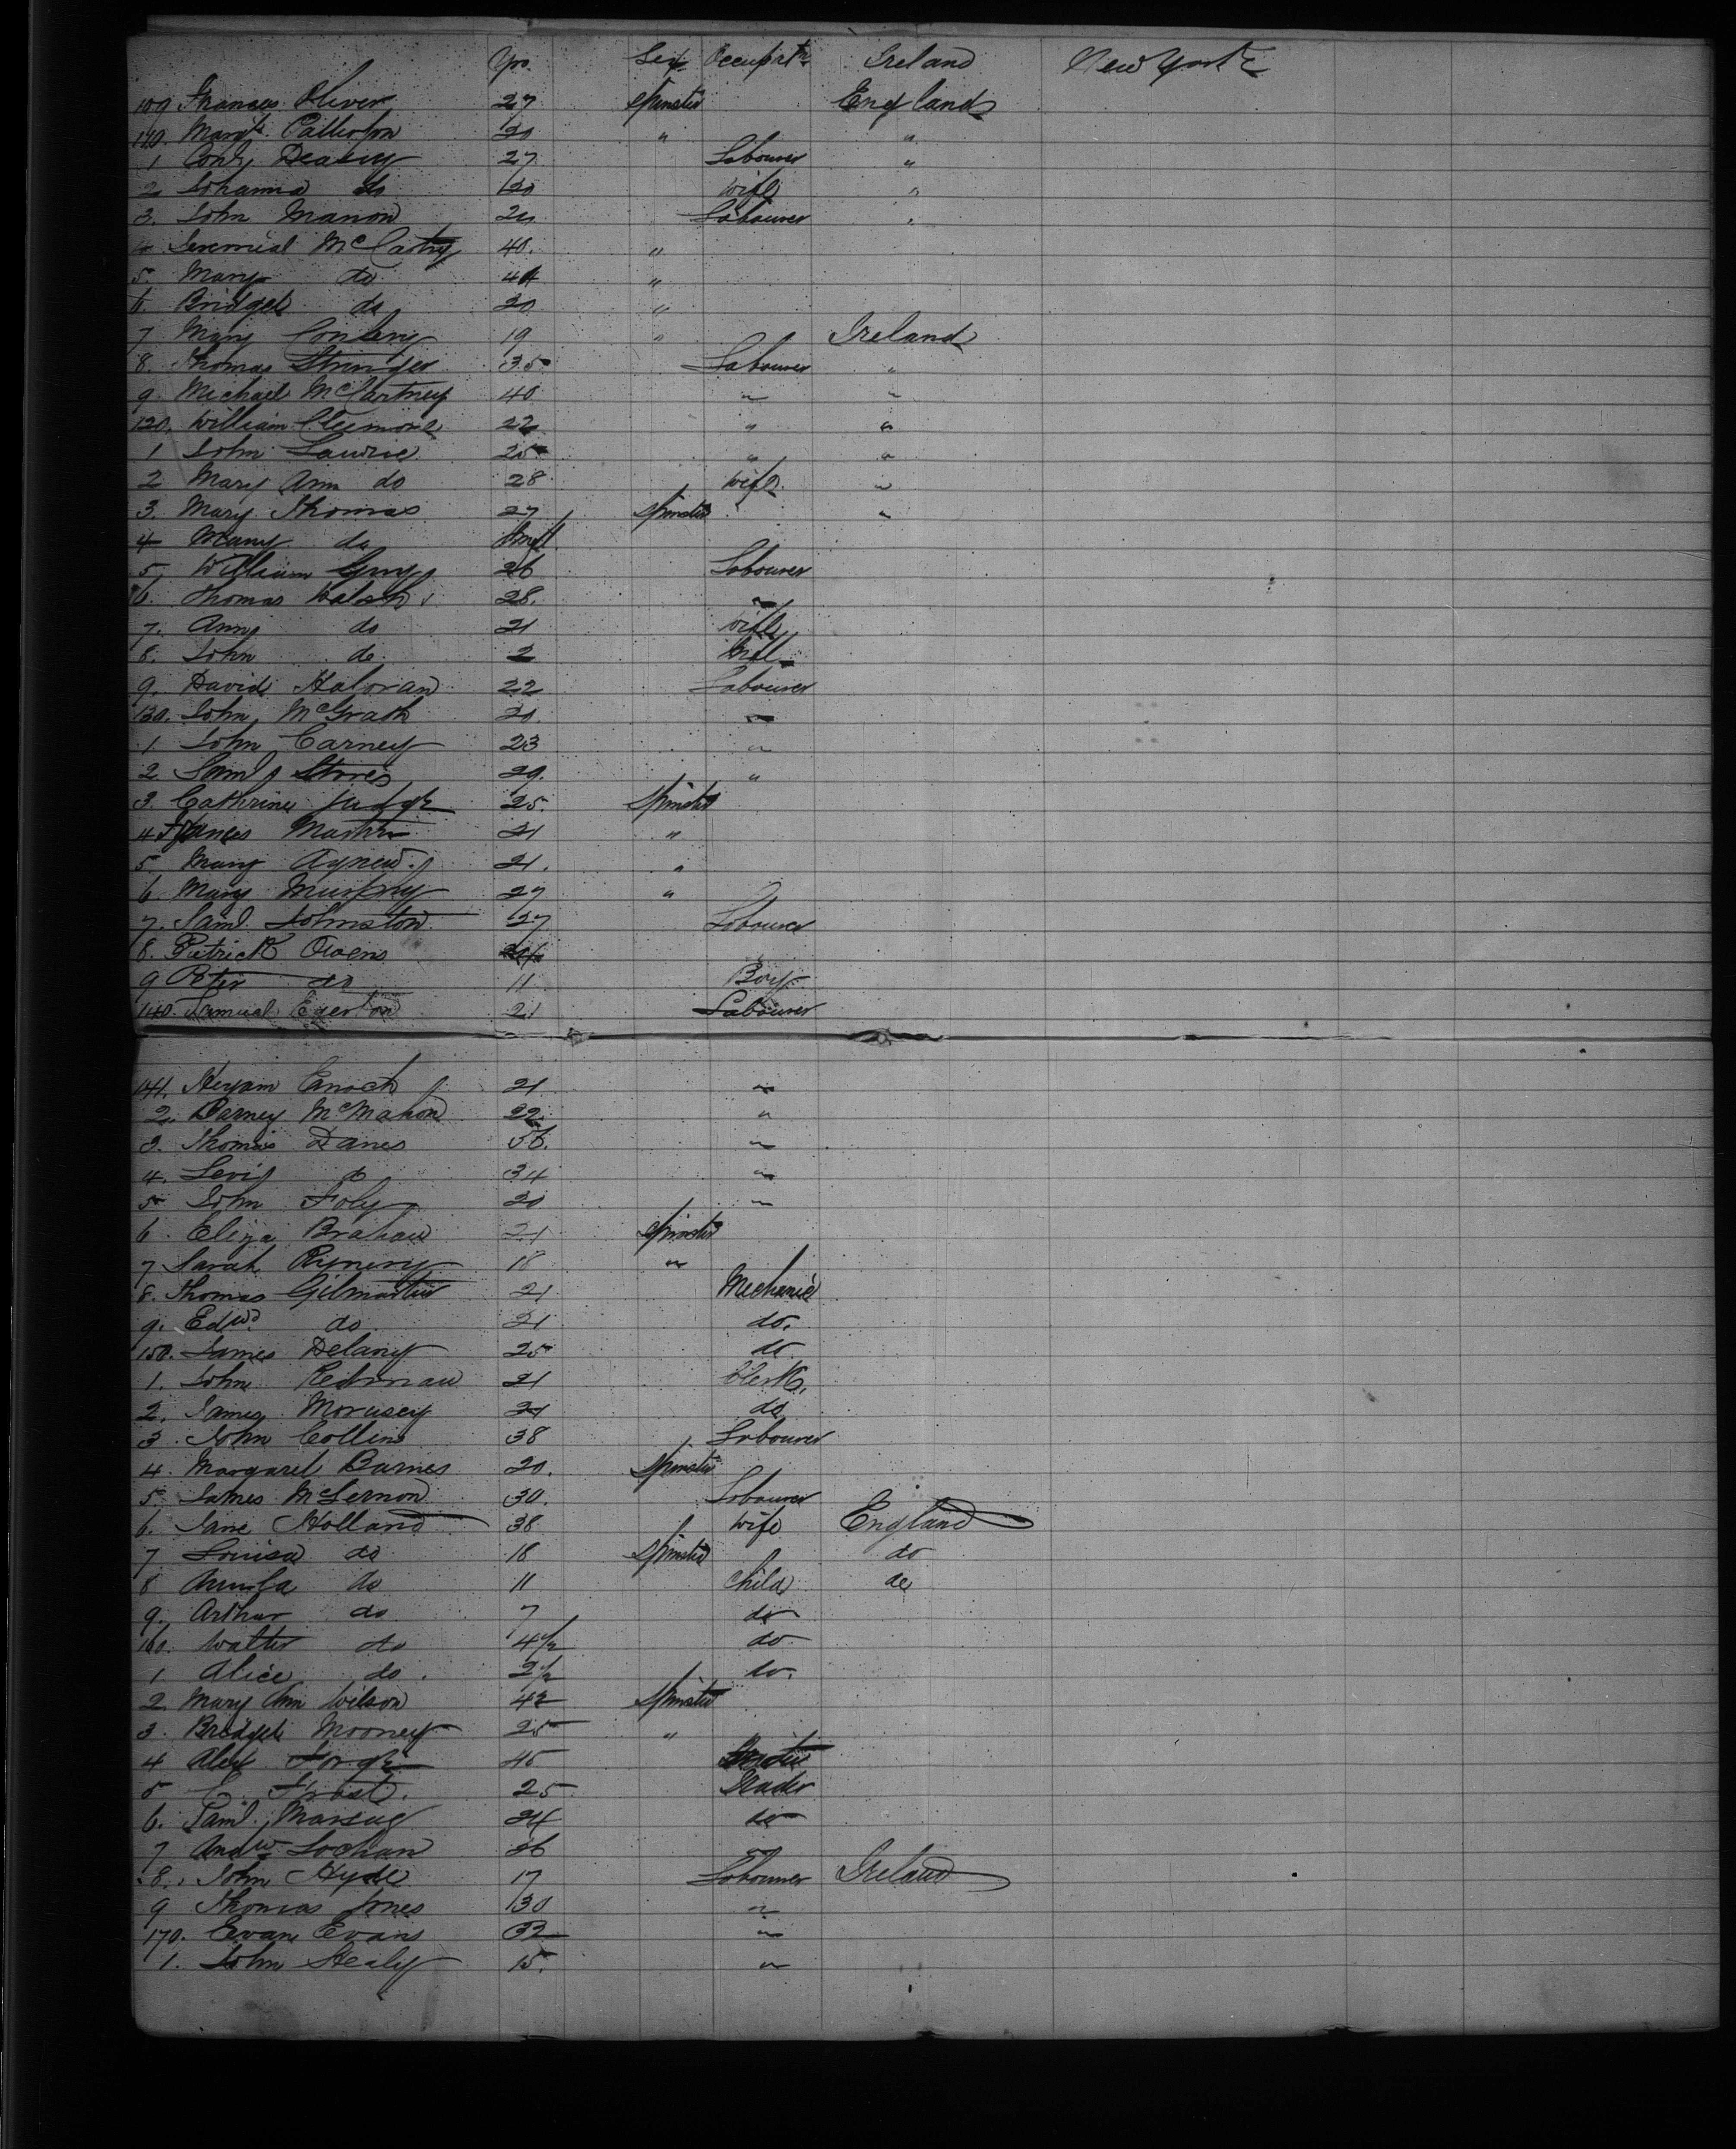 Yrs. Sex Occupatn Ireland New York
109 Frances Oliver 27 Spinster England
110. Margt. 20 " "
1 Deasey 27 Labourer "
2 Johanna do 20 wife "
3. John Manon 24 Labourer "
4 Jeremiah McCathy 40. "
5. Mary do 44 "
6. Bridget do 20 "
7 Mary 19 " Ireland
8. Thomas Stringer 35 Labourer "
9. Michael McCartney 40 " "
120. William 22 " "
1 John Lawrie 25 " "
2 Mary Ann do 28 wife "
3. Mary Thomas 27 Spinster "
4 Mary do Inft
5, William Guy 26 Labourer
6. Thomas Walsh 28. "
7. Ann do 21 wife
8. John do 2 Inft
9. David Haloran 22 Labourer
130. John McGrath 20 "
1 John Carney 23 "
2 Saml 29. "
3. Cathrine Judge 25. Spinster
4 Frances Martin 21 "
5 Mary Agnew 21. "
6. Mary Murphy 27 "
7. Saml. Johnston 27 Labourer
8. Patrick Owens
9 Peter do 11 Boy
140. Samuel Egerton 21 Labourer
141. Enoch 21 "
2. Barney McMahon 22. "
3. Thomas Danes 56. "
4. Levi do 34 "
5 John Foly 20 "
6. Eliza Brahau 21 Spinster
7 Sarah 18 "
8. Thomas Gilmartin 21 Mechanic
9. Edwd do 21 do.
150. James Delany 25 do
1. John Redman 21 Clerk.
2. James Morusey 21 do
3. John Collins 38 Labourer
4. Margaret Barnes 20. Spinster
5. James McLernon 30. Labourer
6. Jane Holland 38 wife England
7 Louisa do 18 Spinster do
8 do 11 child do
9. Arthur do 7 do
160. Walter do 4½ do
1 Alice do. 2½ do.
2. Mary Ann Wilson 42 Spinster
3. Bridget Mooney 25 "
4 Alex 45
5 C. Frost. 25
6. Saml. 24 do
7 Andw Lochan 26 "
8. John Hyde 17 Labourer Ireland
9 Thomas Jones 30 "
170. Evan Evans 32 "
1. John Healy 15. "